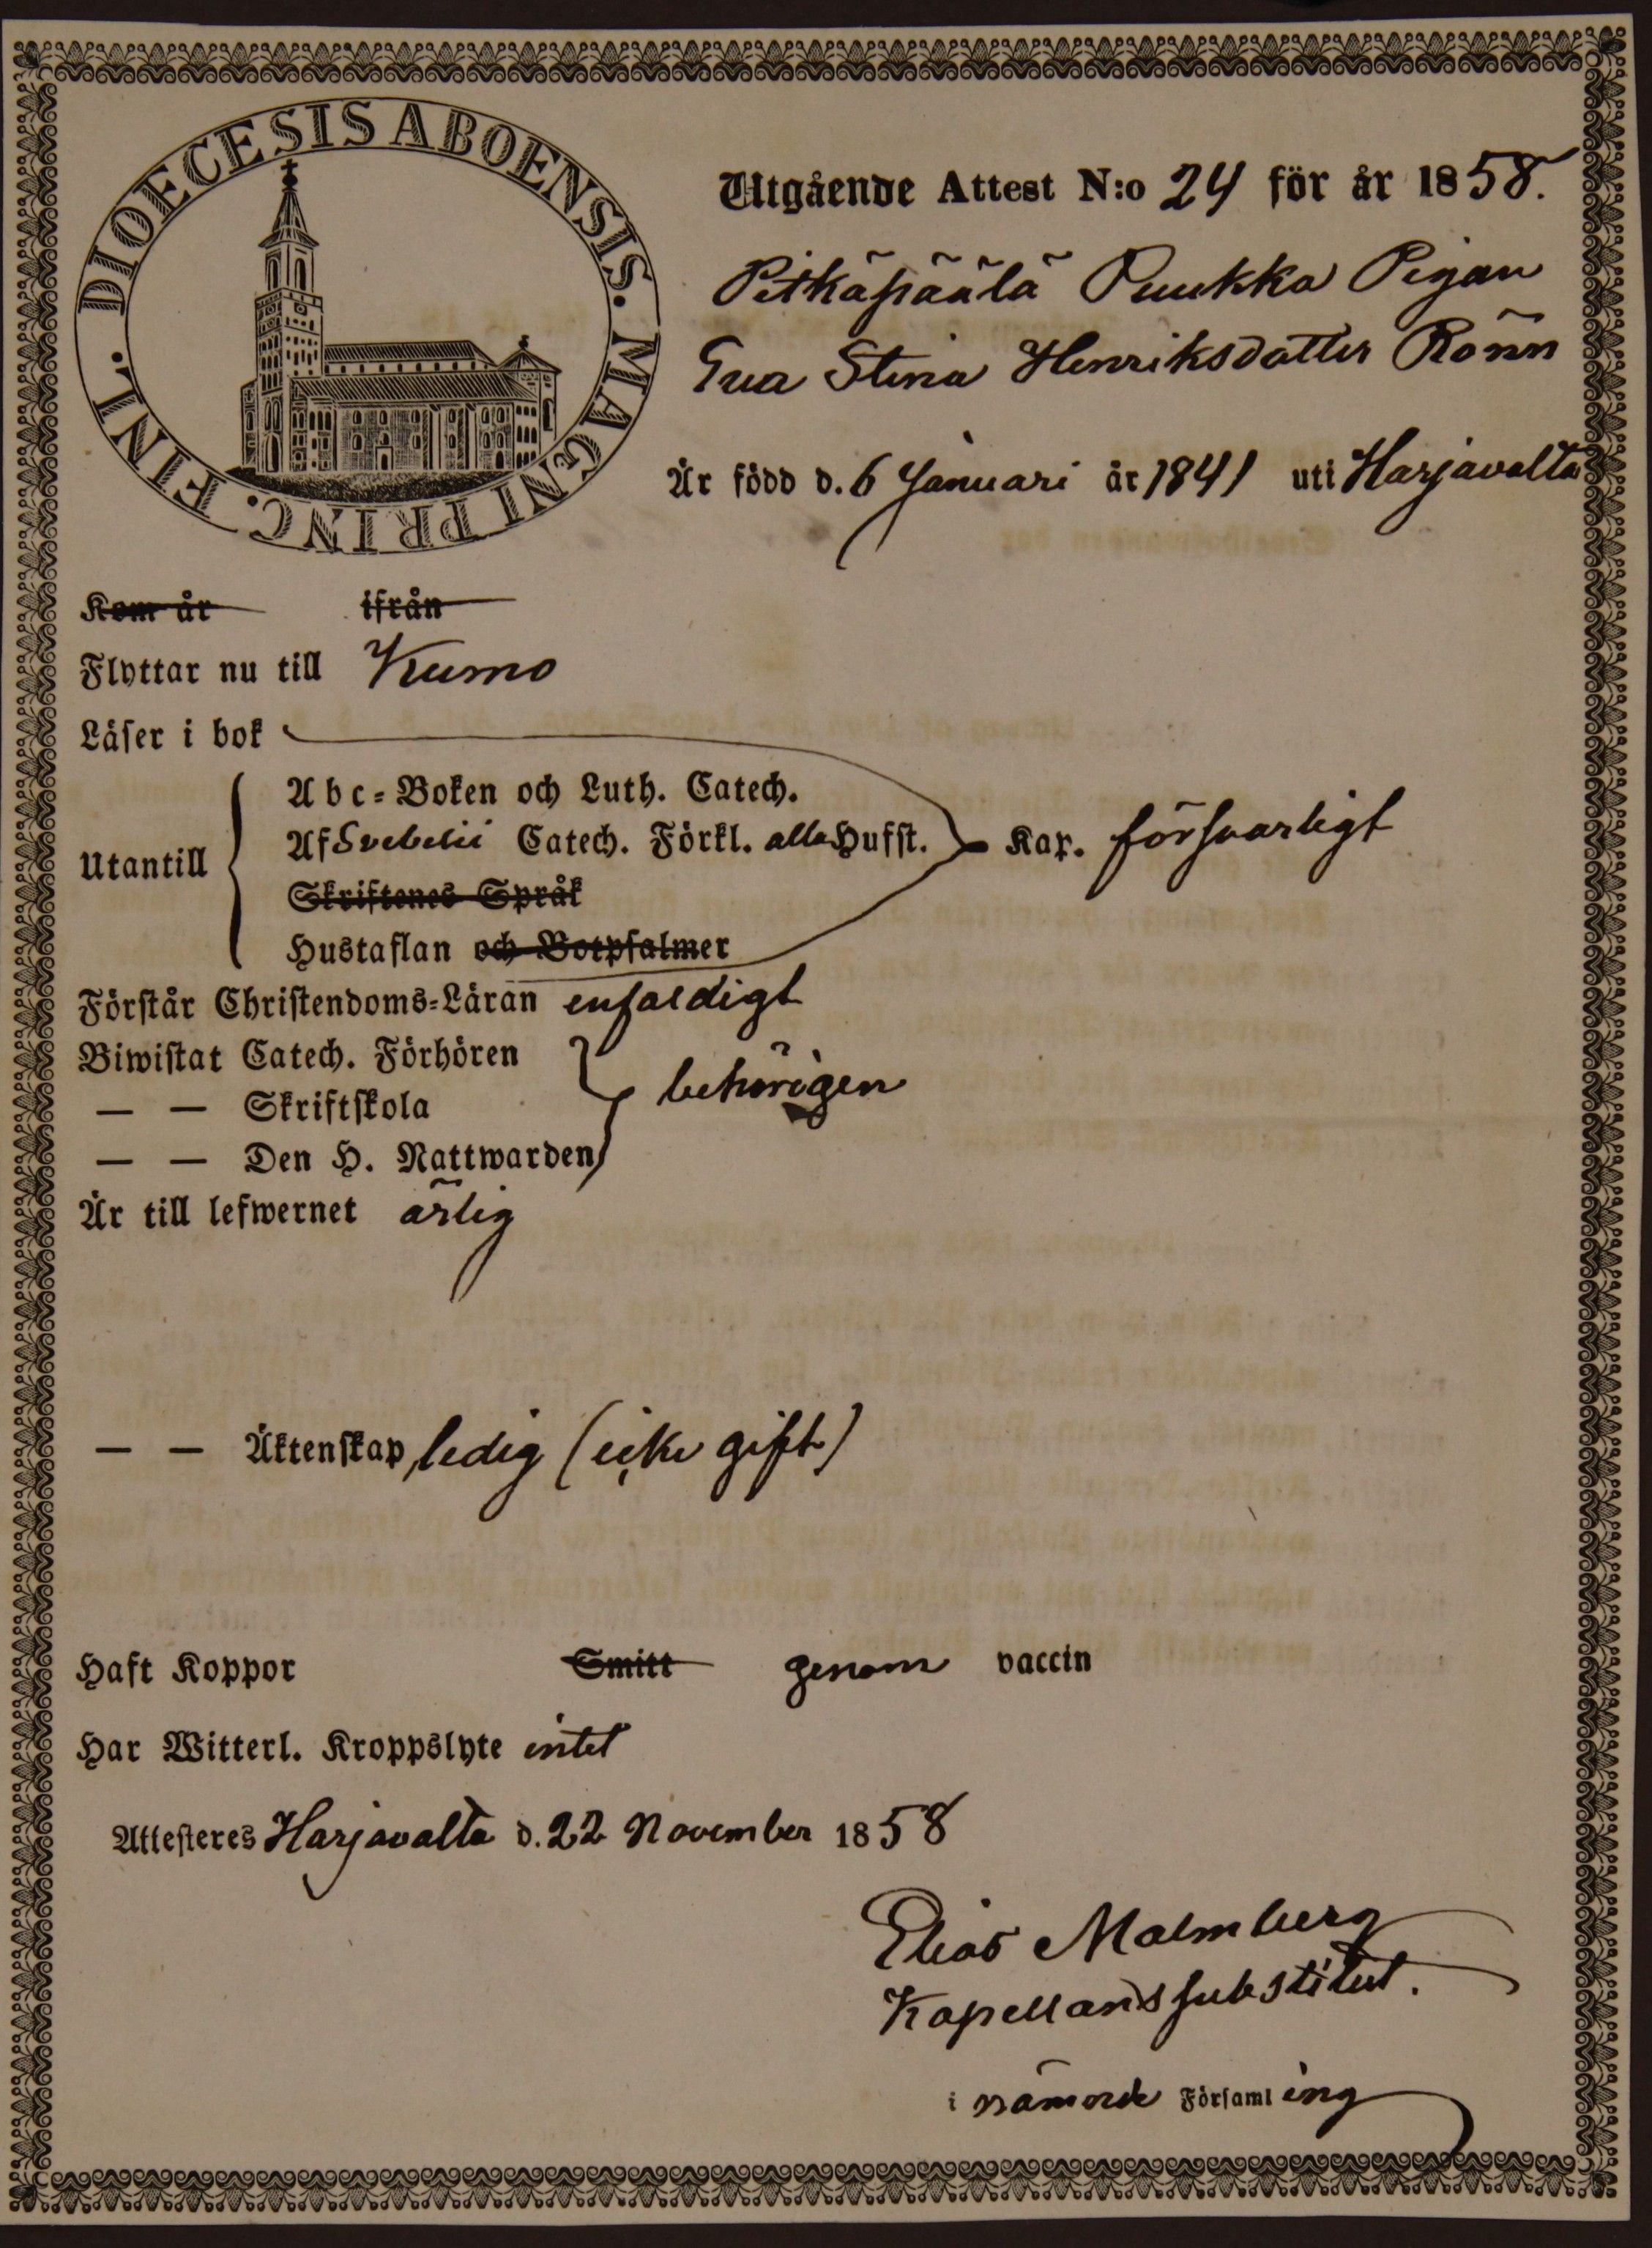 DIOECESIS ABOENSIS. MAGNI PRINC. FINL.
Utgående Attest N:o 24 för år 1858.
Pitkäpäälä Puukka Pigan
Eva Stina Henriksdotter Rönn
Är född d. 6 Januari år 1841 uti Harjavalta
Kom år ifrån
Flyttar nu till Kumo
Läser i bok
Utantill
Abc-Boken och Luth. Catech.
Af Svebelii Catech. Förkl. alla Hufst. Kap. försvarligt
Skriftenes Språk
Hustaflan och Botpsalmer
Förstår Christendoms-Läran enfaldigt
Biwistat Catech. Förhören
— — Skriftskola behörigen
— — Den H. Nattwarden
Är till lefwernet ärlig
— — Äktenskap, ledig (icke gift)
Haft Koppor Smitt genom vaccin
Har Witterl. Kroppslyte intet
Attesteres Harjavalta d. 22 November 1858
Elias Malmberg
Kapellanssubstitut.
i nämnde Församling